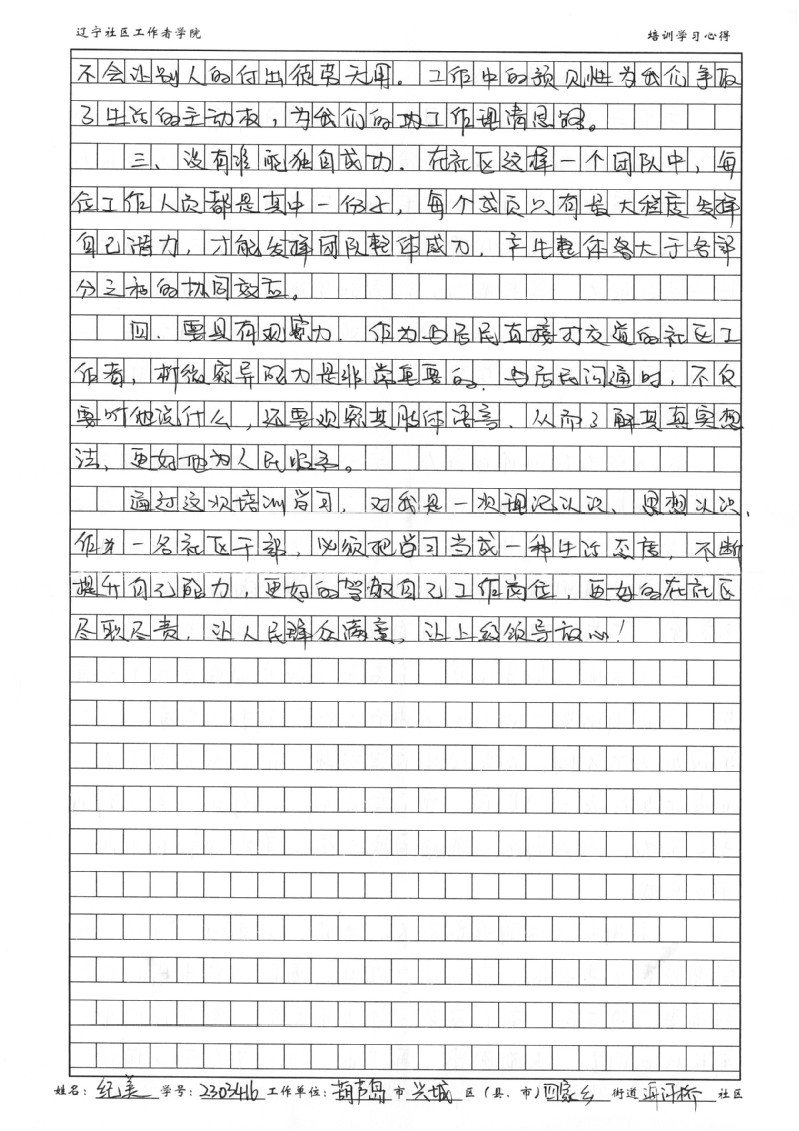 辽宁社区工作者学院 培训学习心得
不会让别人的付出徒劳无用。工作中的预见性为我们争取
了生活的主动权，为我们的工作理清思路。
三、没有谁能独自成功．在社区这样一个团队中，每
位工作人员都是其中一份子，每个成员只有最大程度发挥
自己潜力，才能发挥团队整体威力．产生整体各大于各部
分之和的协同效应。
四．要具有观察力．作为与居民直接打交道的社区工
作者，析微察异能力是非常重要的．与居民沟通时，不仅
要听他说什么，还要观察其肢体语言．从而了解其真实想
法，更好地为人民服务。
通过这次培训学习，对我是一次理论认识、思想认识，
作为一名社区干部，必须把学习当成一种生活态度，不断
提升自己能力，更好的驾驭自己工作岗位，更好的在社区
尽职尽责，让人民群众满意，让上级领导放心！
姓名：纪美 学号：2303416 工作单位：葫芦岛市兴城区（县、市）四家乡街道 河桥社区